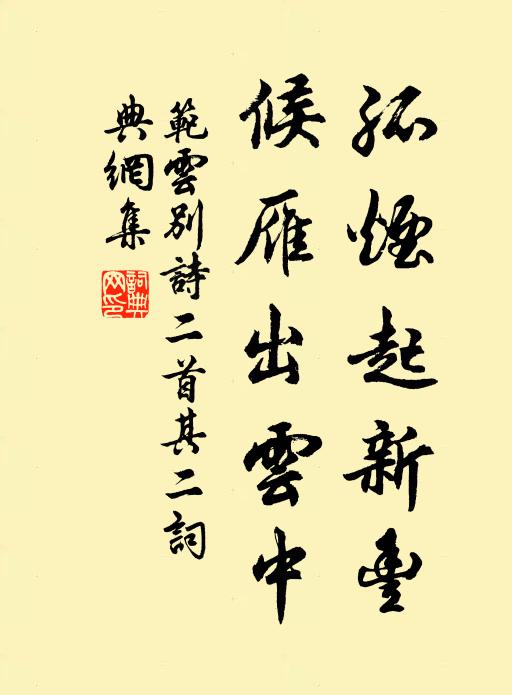 孤煙起新豐
候雁出雲中
範雲別詩二首其二詞
典網集
詞典
网印